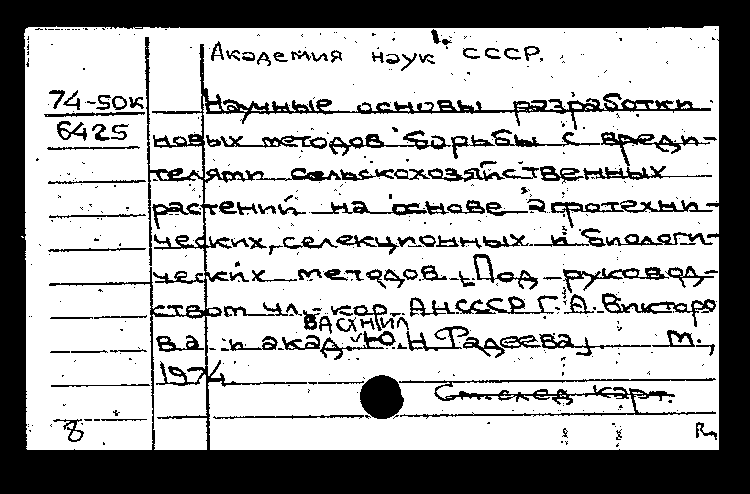 1.
Академия наук СССР.
74-50к
6425
Научные основы разработки
новых методов борьбы с вреди-
телями сельскохозяйственных
растений на основе агротехни-
ческих, селекционных и биологи-
ческих методов. [Под руковод-
ством чл.-кор. АНСССР Г.А. Викторо
ВАСХНИЛ
ва и акад. Ю.Н. Фадеева]. М.,
1974.
См. след карт.
8